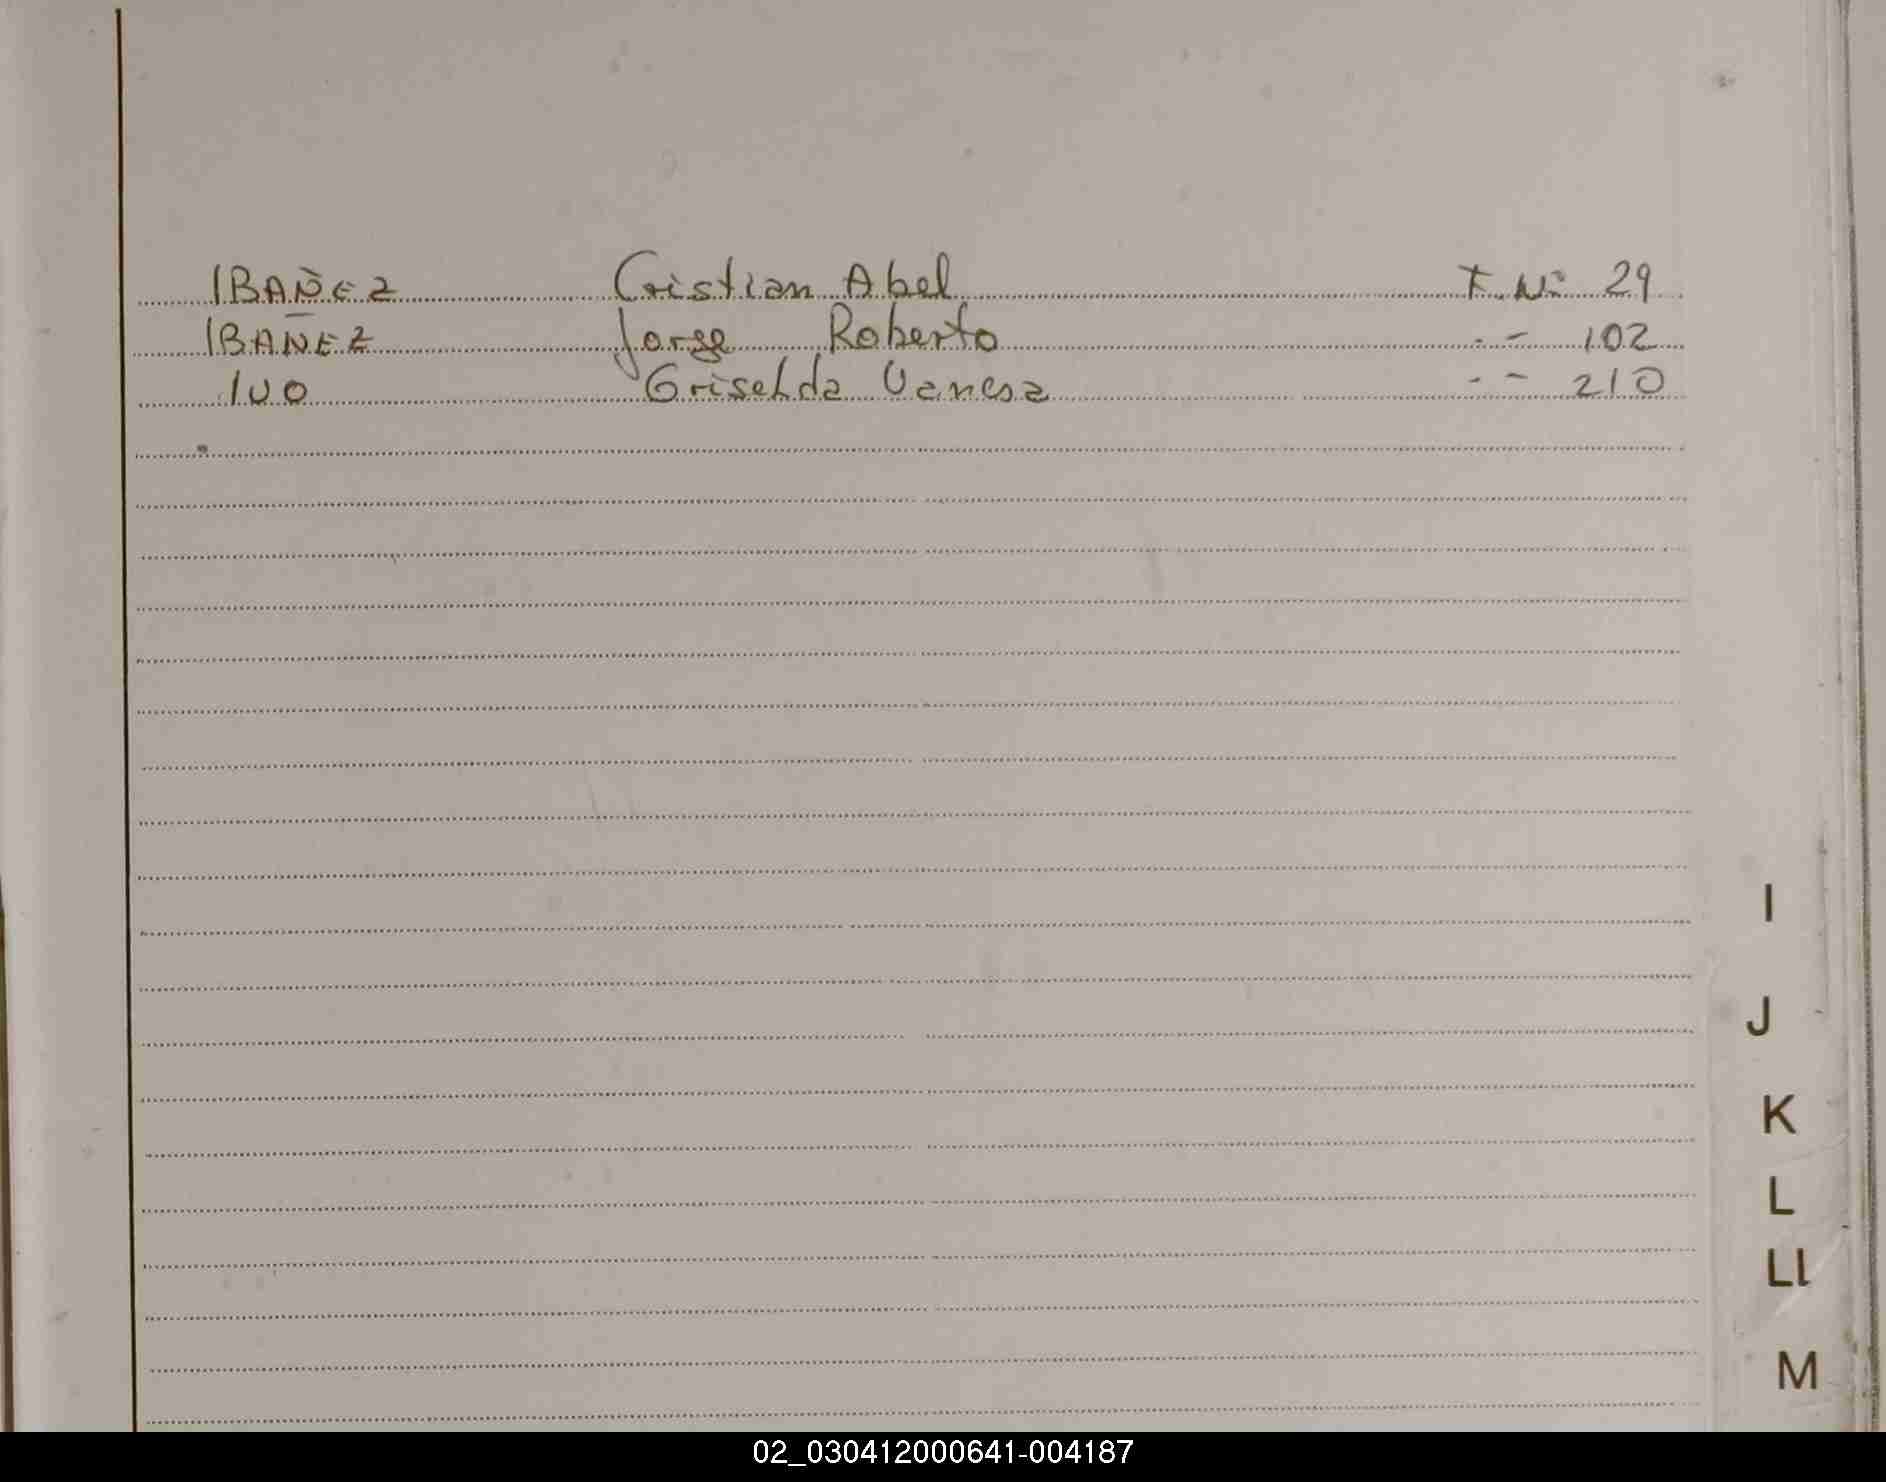 IBAÑEZ Cristian Abel F. Nº 29
IBAÑEZ Jorge Roberto . - 102
IVO Griselda Vanesa . - 210
I
J
K
L
Ll
M
02_030412000641-004187